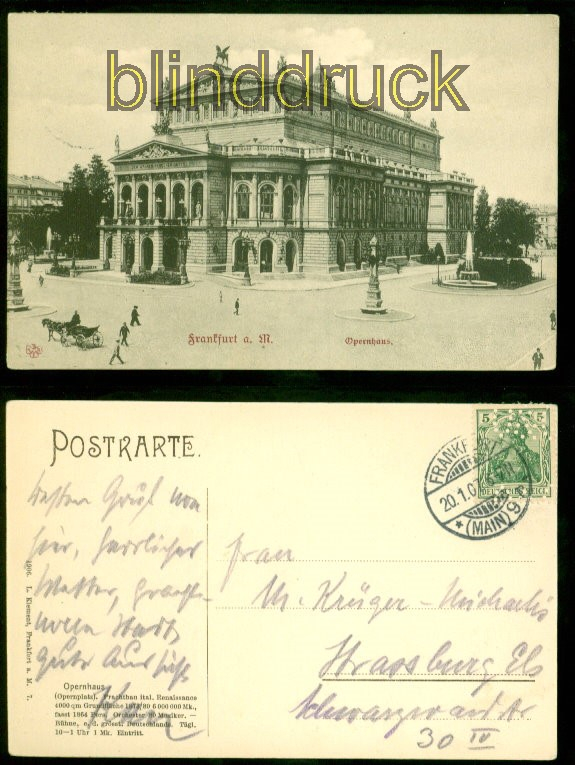 blinddruck
Frankfurt a. M.
Opernhaus.
POSTKARTE.
FRANKF
20.1.0
(MAIN) 9
5 5
DEUTSCHES REICH
Besten Gruß von
hier, herrliches
Wetter, pracht-
volle Stadt,
Gute Aussicht
Frau
M. Krüger-Michaelis
Strassburg Els
30 IV
1906. L. Klement, Frankfurt a. M. 7.
Opernhaus
(Opernplatz). Prachtbau ital. Renaissance
4000 qm Grundfläche 80 6 000 000 Mk.,
fasst 1864 Pers. Orchester Musiker. —
Bühne, e. d. grösst. Deutschlands. Tägl.
10—1 Uhr 1 Mk. Eintritt.